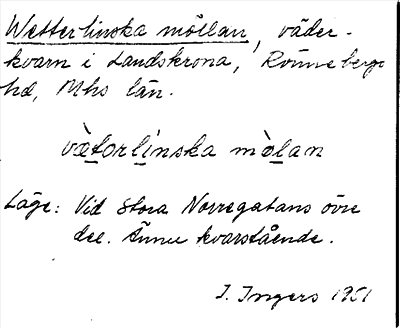 Wetterlinska möllan, väder-
kvarn i Landskrona, Rönnebergs
hd, Mhs län.
vätorlinska mölan
Läge: Vid Stora Norregatans övre
del. Ännu kvarstående.
I. Ingers 1951